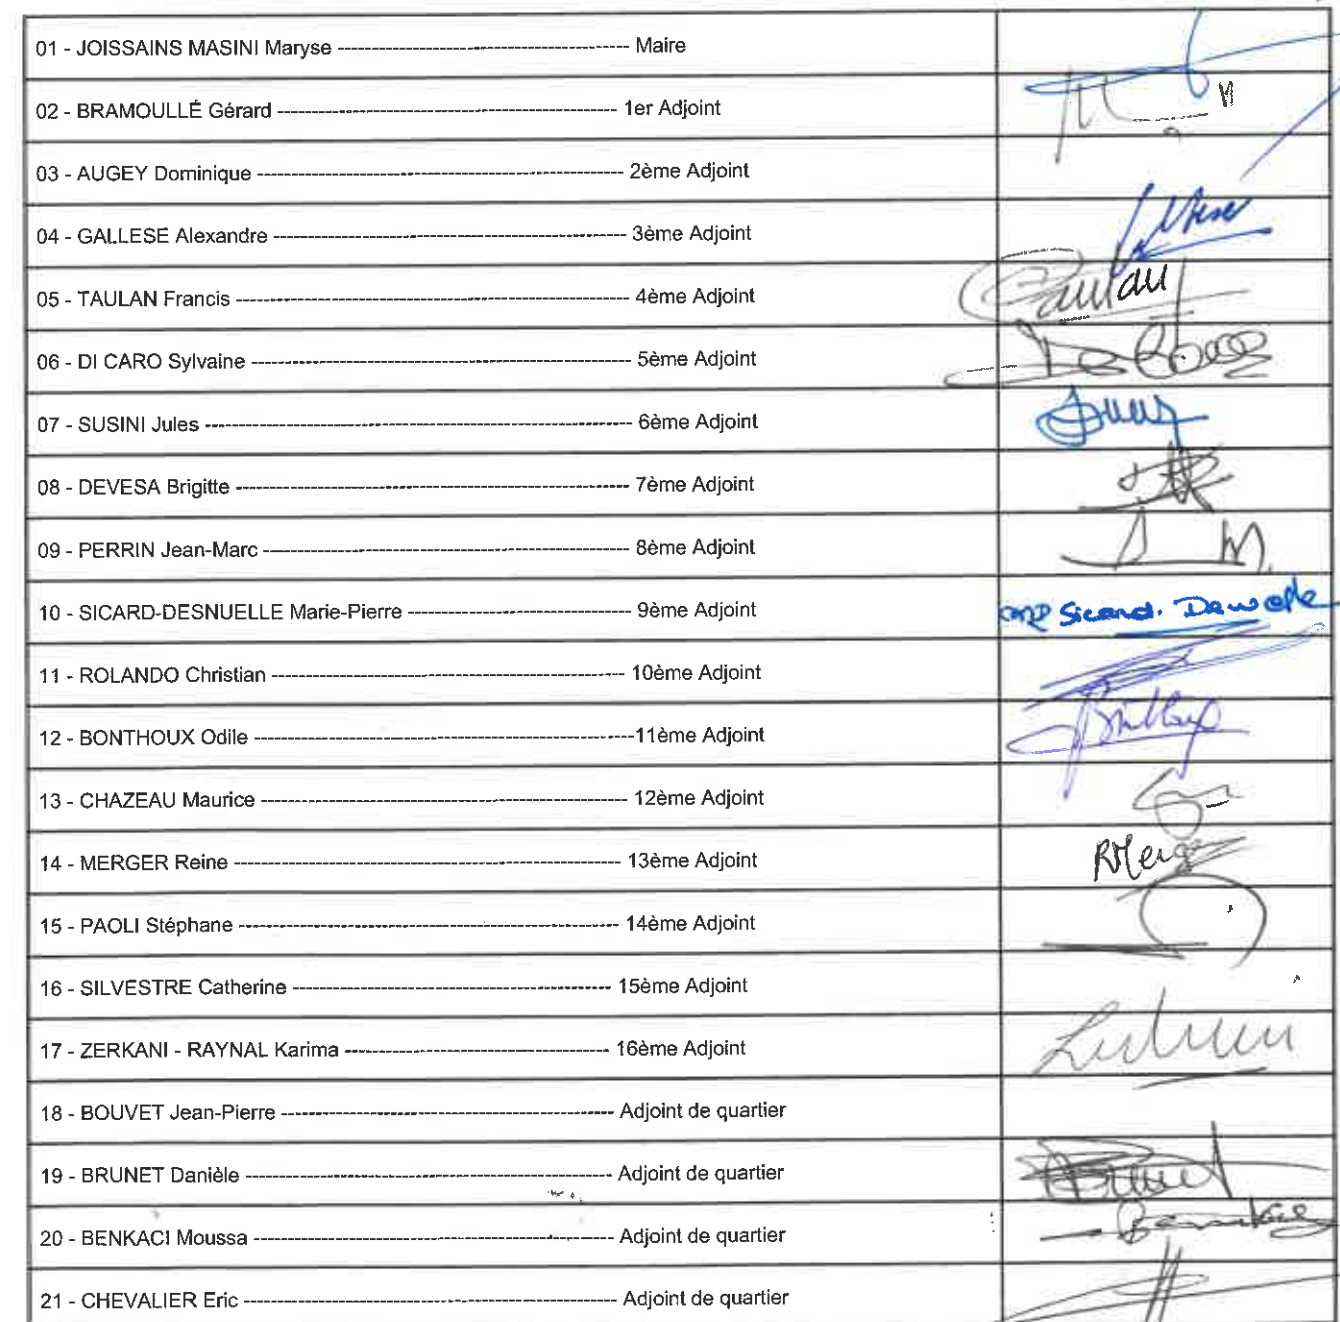 01 - JOISSAINS MASINI Maryse ---------------------------------------- Maire
02 - BRAMOULLÉ Gérard ---------------------------------------- 1er Adjoint
03 - AUGEY Dominique ---------------------------------------- 2ème Adjoint
04 - GALLESE Alexandre ---------------------------------------- 3ème Adjoint
05 - TAULAN Francis ---------------------------------------- 4ème Adjoint
06 - DI CARO Sylvaine ---------------------------------------- 5ème Adjoint
07 - SUSINI Jules ---------------------------------------- 6ème Adjoint
08 - DEVESA Brigitte ---------------------------------------- 7ème Adjoint
09 - PERRIN Jean-Marc ---------------------------------------- 8ème Adjoint
10 - SICARD-DESNUELLE Marie-Pierre ------------------------------ 9ème Adjoint
11 - ROLANDO Christian ---------------------------------------- 10ème Adjoint
12 - BONTHOUX Odile ----------------------------------------11ème Adjoint
13 - CHAZEAU Maurice ---------------------------------------- 12ème Adjoint
14 - MERGER Reine ---------------------------------------- 13ème Adjoint
15 - PAOLI Stéphane ---------------------------------------- 14ème Adjoint
16 - SILVESTRE Catherine ---------------------------------------- 15ème Adjoint
17 - ZERKANI - RAYNAL Karima ------------------------------ 16ème Adjoint
18 - BOUVET Jean-Pierre ---------------------------------------- Adjoint de quartier
19 - BRUNET Danièle ---------------------------------------- Adjoint de quartier
20 - BENKACI Moussa ---------------------------------------- Adjoint de quartier
21 - CHEVALIER Eric ---------------------------------------- Adjoint de quartier